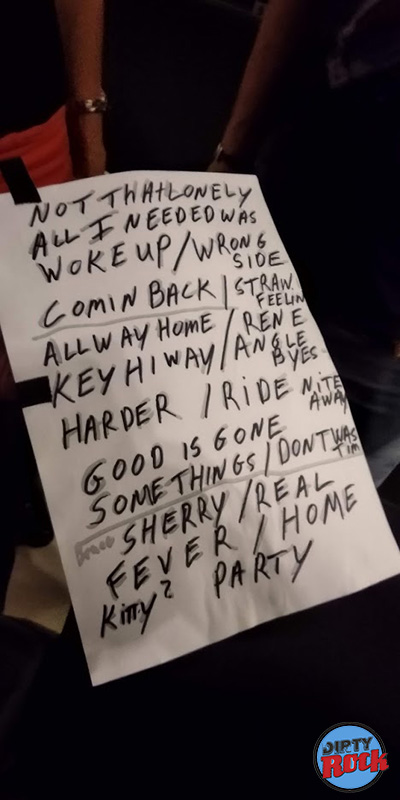 NOT THAT LONELY
ALL I NEEDED WAS
WOKE UP / WRONG
SIDE
COMIN BACK / STRAW
FEELIN
ALLWAY HOME / RENE
KEY HIWAY / ANGLE
BYES
HARDER / RIDE NITE
AWAY
GOOD IS GONE
SOMETHINGS / DONT WAS
TIM
SHERRY / REAL
FEVER / HOME
Kitty? PARTY
DIRTY
ROCK